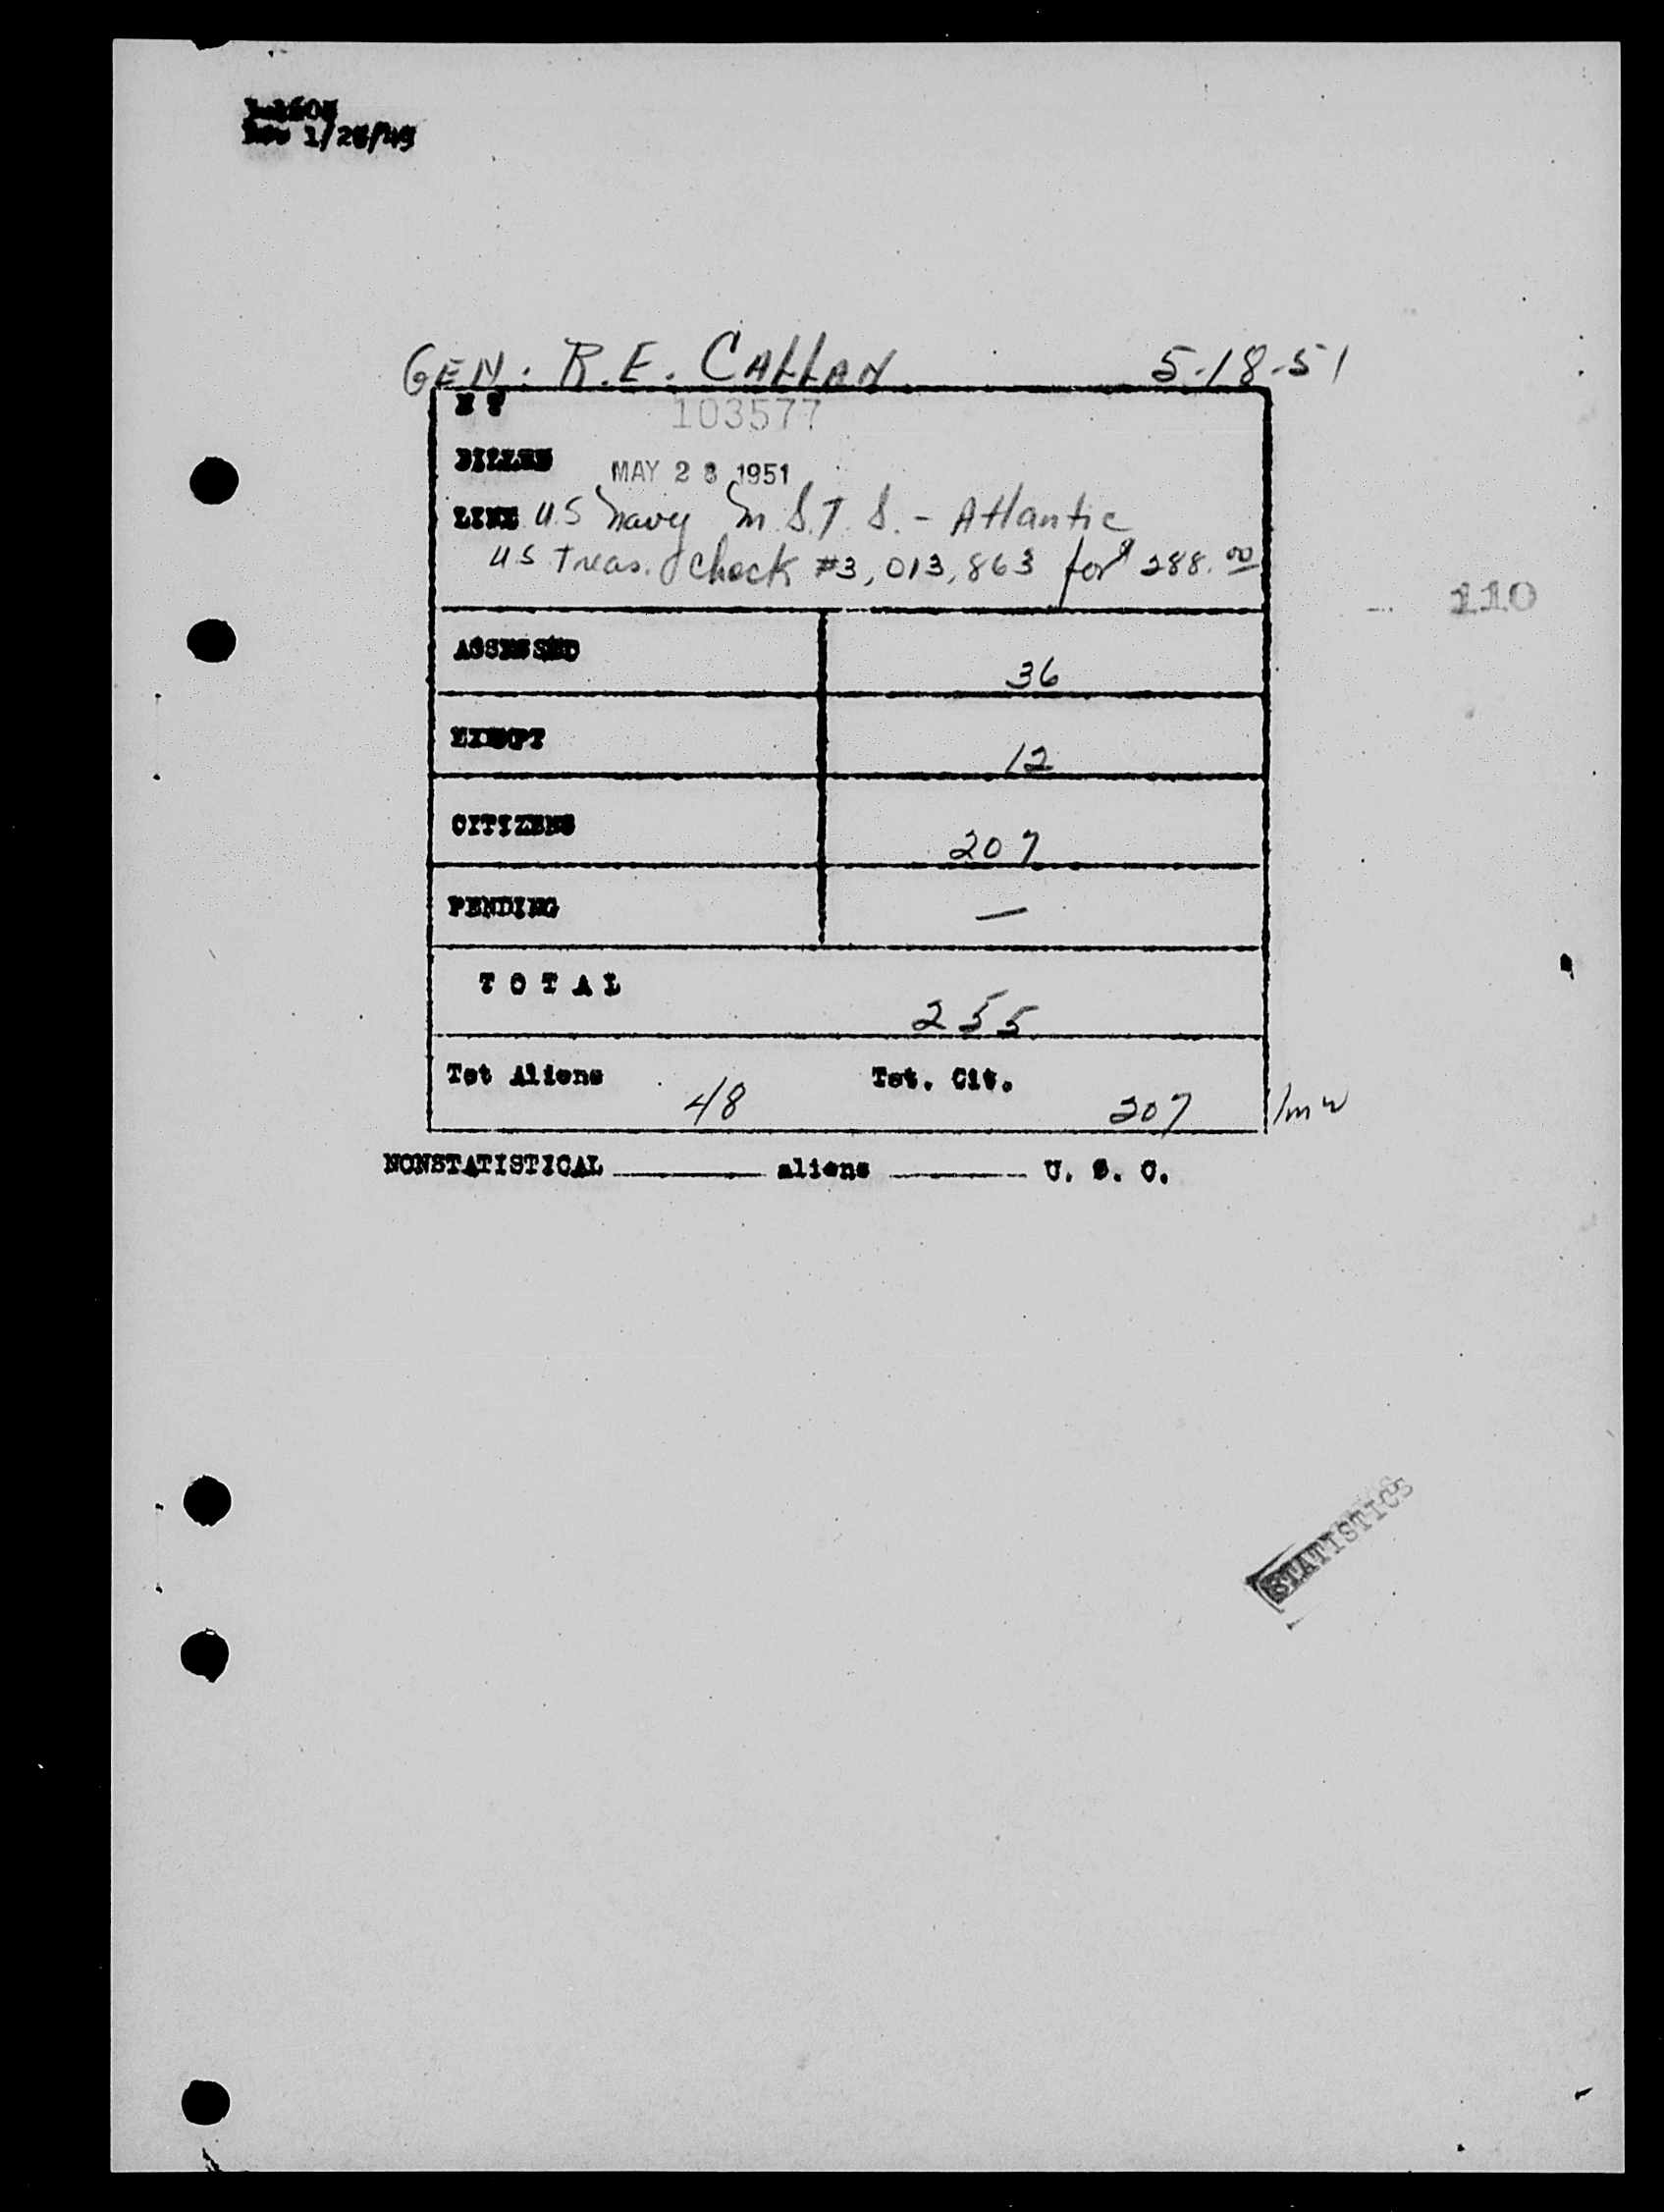 Rev 1/28/49
GEN. R.E. CALLAN 5-18-51
103577
BILLED MAY 28 1951
LINE U.S Navy M.S.T.S. - Atlantic
U.S Treas. Check #3,013,863 for $288.00
110
ASSESSED 36
EXEMPT 12
CITIZENS 207
PENDING —
TOTAL 255
Tot Aliens 48 Tot. Cit. 207 /mw
NONSTATISTICAL ______ aliens ______ U. S. C.
STATISTICS